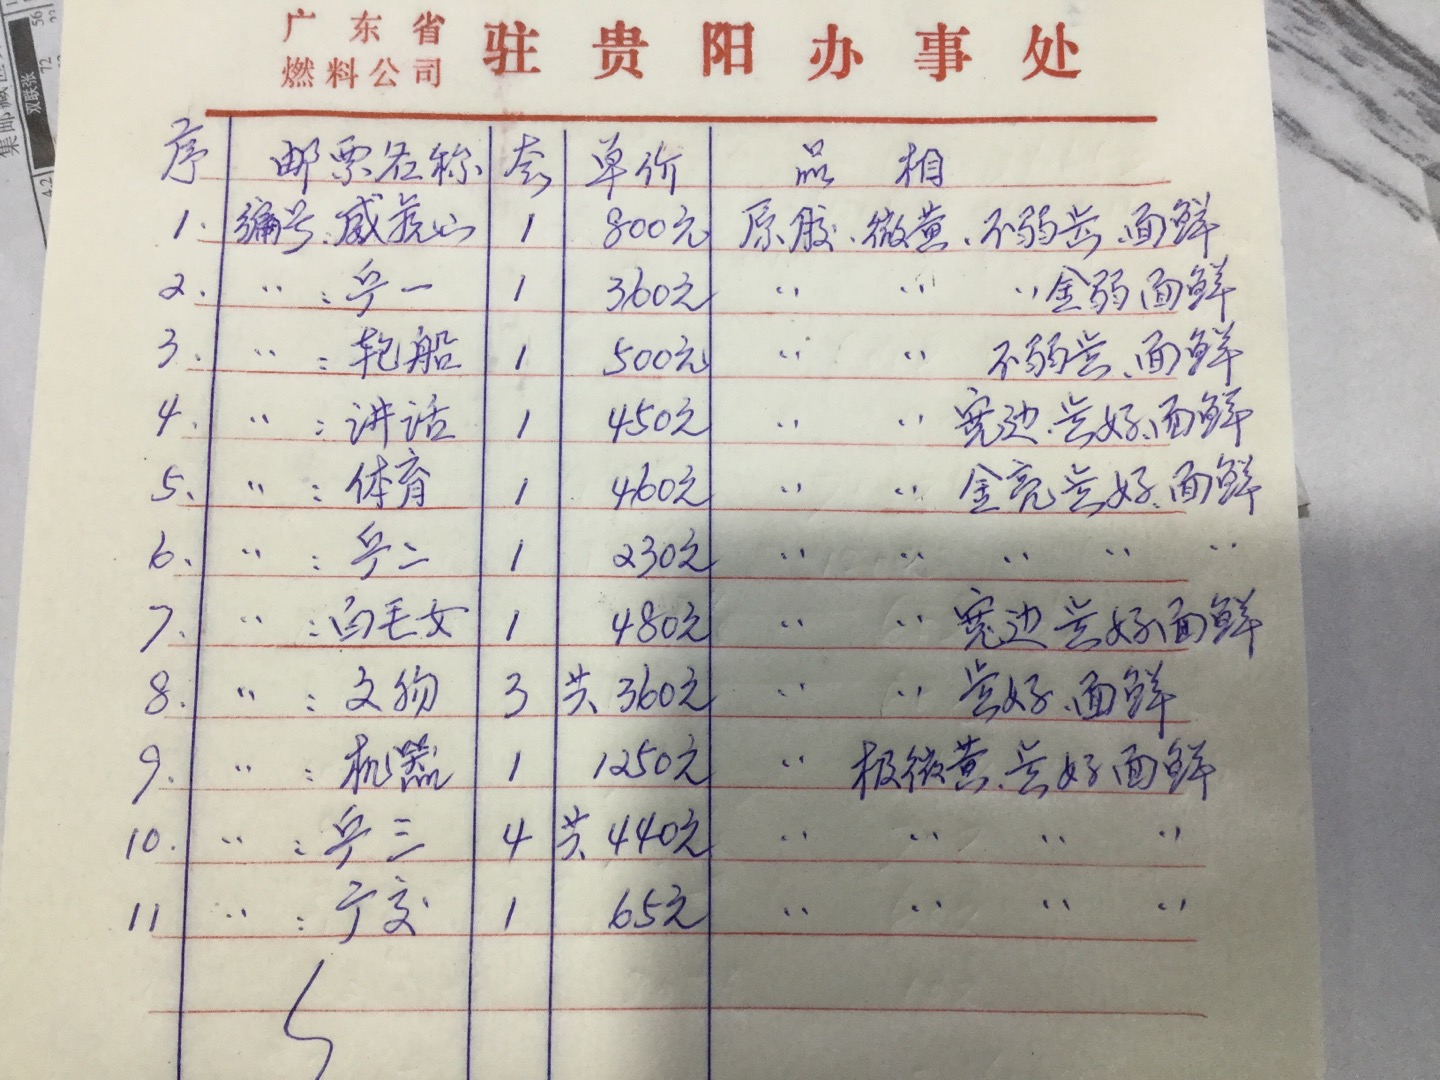 广东省
燃料公司 驻贵阳办事处
序 邮票名称 套 单价 品相
1. 编号:威虎山 1 800元 原胶、微黄、不弱齿、面鲜
2. 〃 :乒一 1 360元 〃 〃 〃 金弱面鲜
3. 〃 :轮船 1 500元 〃 〃 不弱齿、面鲜
4. 〃 :讲话 1 450元 〃 〃 宽边、齿好、面鲜
5. 〃 :体育 1 460元 〃 〃 金亮齿好、面鲜
6. 〃 :乒二 1 230元 〃 〃 〃 〃 〃
7. 〃 :白毛女 1 480元 〃 〃 宽边齿好、面鲜
8. 〃 :文物 3 共360元 〃 〃 齿好、面鲜
9. 〃 :机器 1 1250元 〃 极微黄、齿好面鲜
10. 〃 :乒三 4 共440元 〃 〃 〃 〃
11 〃 :广交 1 65元 〃 〃 〃 〃
双联张